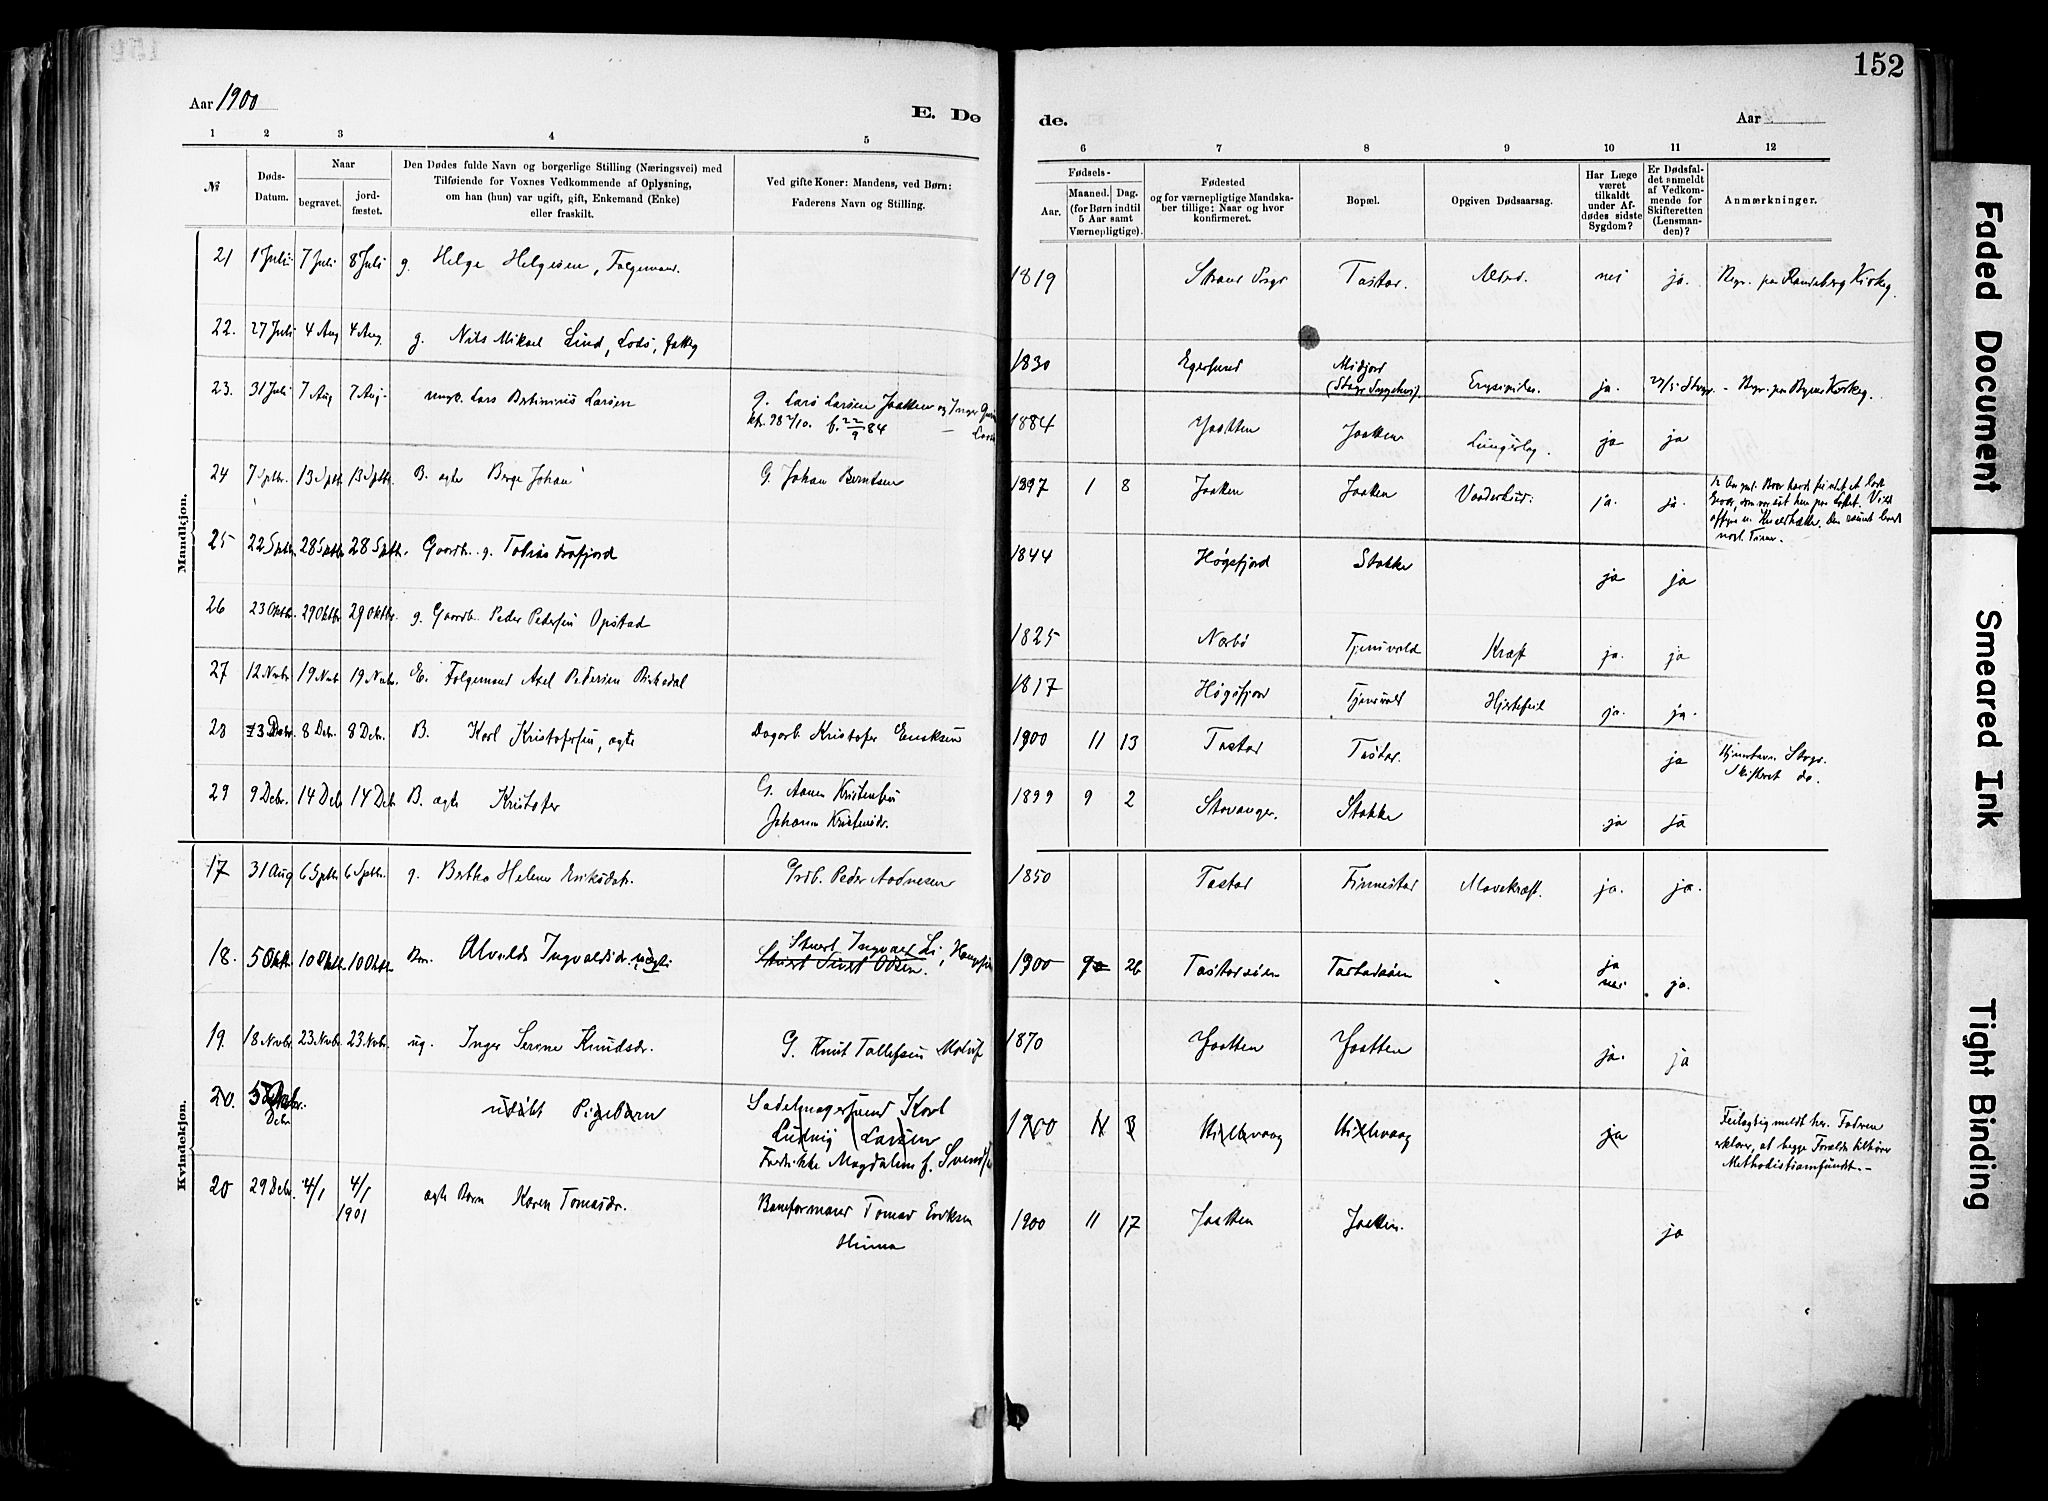 152
Aar 1900
E. Dø
de.
Aar
1 2 3 4 5
6 7 8 9 10 11 12
№
Døds-
Datum.
Naar
begravet.
jord-
fæstet.
Den Dødes fulde Navn og borgerlige Stilling (Næringsvei) med
Tilføiende for Voxnes Vedkommende af Oplysning,
om han (hun) var ugift, gift, Enkemand (Enke)
eller fraskilt.
Ved gifte Koner: Mandens, ved Børn:
Faderens Navn og Stilling.
Fødsels-
Aar.
Maaned. Dag.
(for Børn indtil
5 Aar samt
Værnepligtige).
Fødested
og for værnepligtige Mandska-
ber tillige: Naar og hvor
konfirmeret.
Bopæl.
Opgiven Dødsaarsag.
Har Læge
været
tilkaldt
under Af-
dødes sidste
Sygdom?
Er Dødsfal-
det anmeldt
af Vedkom-
mende for
Skifteretten
(Lensman-
den)?
Anmærkninger.
Mandkjøn.
21 1 Juli 7 Juli 8 Juli g. Helge Helgesen, Folgemand.
1819 Strand Tastad. nei ja.
22. 27 Juli 4 Aug 4 Aug. g. Nils Mikael Lind, Lods,
1830 Egersund Midjord ja.
23. 31 Juli 7 Aug 7 Aug. ungk. Lars Bertinius Larsen g. Lars Larsen Jaatten og Inger
f. 22/9 84
1884 Jaatten Jaatten ja ja
24 7 Sptbr. 13 Sptb 13 Sptb. B. ægte Berge Johan G. Johan Berntsen
1897 1 8 Jaatten Jaatten ja. ja.
25 22 Sptbr. 28 Sptbr 28 Sptb. Gaardb. g. Tobias Frafjord
1844 Høgsfjord Stokke ja ja
26 23 Oktbr. 29 Oktbr 29 Oktbr. g. Gaardb. Peder Pedersen Opstad
1825 Nærbø Tjensvold Kræft ja. ja
27 12 Nvbr. 19 Nvb 19 Nvbr. E. Folgemand Axel Pedersen Birkedal
1817 Høgsfjord Tjensvold Hjertefeil ja. ja.
28 3 Debr. 8 Debr. 8 Debr. B. Karl Kristofersen, ægte Dagarb. Kristofer Eriksen
1900 11 13 Tastad Tastad. ja
29 9 Debr. 14 Deb 14 Deb B. ægte Kristofer G. Aanen Kristensen
Johanne Kristensdr.
1899 9 2 Stavanger. Stokke ja ja
Kvindekjøn.
17 31 Aug 6 Sptbr 6 Sptbr. g. Bertha Helene Eriksdatr. Grdb. Peder Aadnesen
1850 Tastad Finnestad Mavekræft. ja. ja.
18. 5 Oktb. 10 Oktb. 10 Oktbr. Bn. Alvilde Ingvaldsdr. uægte Stuert Ingvald Li,
1900 9 26 Tastadsøen Tastadsøen ja nei ja.
19. 18 Nvbr. 23 Nvbr. 23 Nvbr. ug. Inger Serene Knudsdr. G. Knut Tollefsen
1870 Jaatten Jaatten ja. ja
20. 5 Debr udøbt Pigebarn Sadelmagersvend Karl
Ludvig Larsen
Fredrikke Magdalene f. Svendsen
1900 Hillevaag Hillevaag ja
Feilagtig meldt her. Faderen
erklærer, at begge Forældre tilhører
Methodistsamfundet.
20 29 Debr. 4/1 4/1 1901 ægte Barn Karen Tomasdr. Baneformand Tomas Eriksen
Hinna
1900 11 17 Jaatten Jaatten. ja
Faded Document
Smeared Ink
Tight Binding